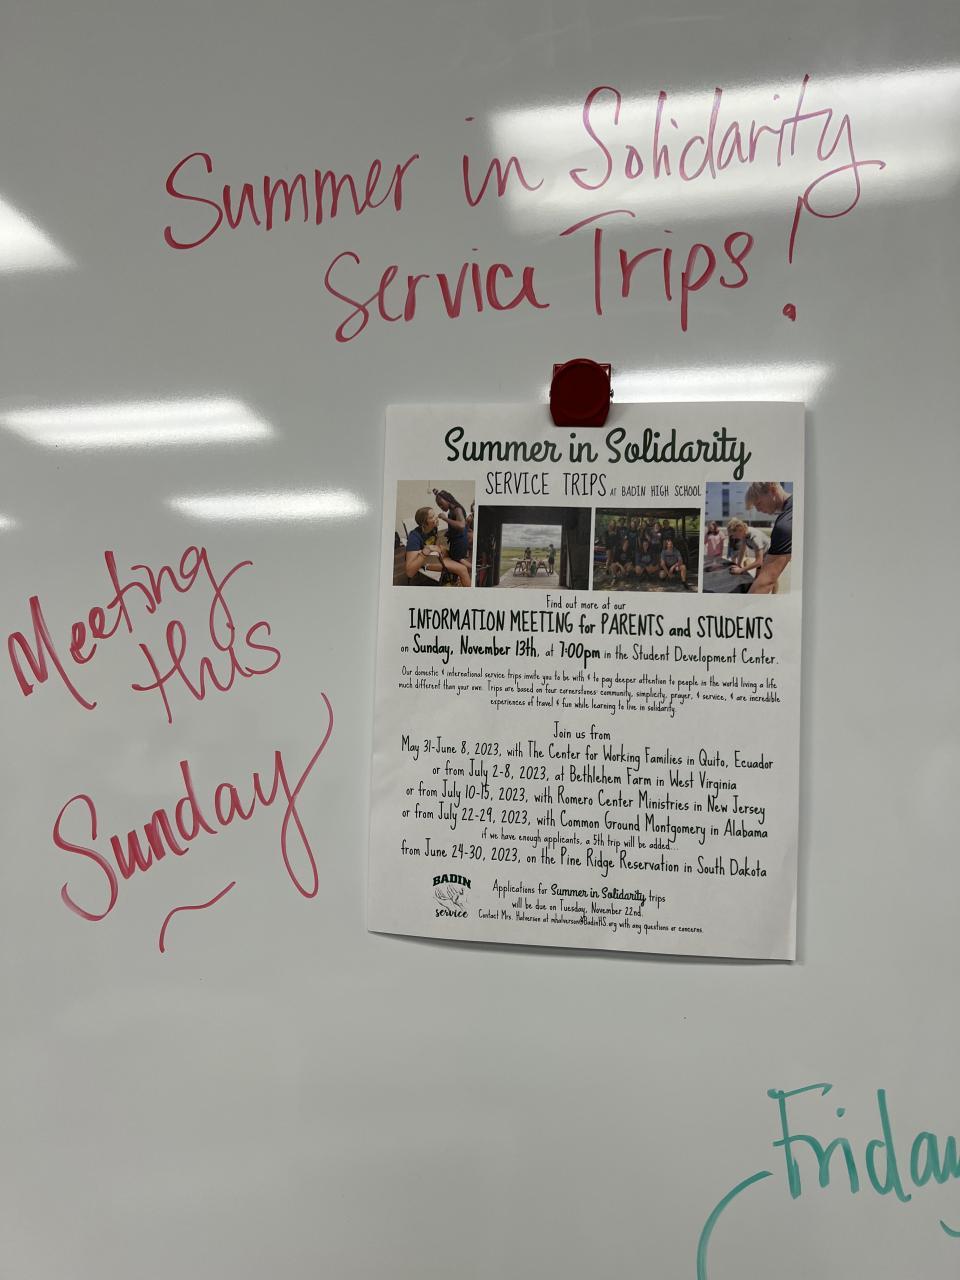 Summer in Solidarity
Service Trips!
Meeting
this
Sunday
Summer in Solidarity
SERVICE TRIPS AT BADIN HIGH SCHOOL
Find out more at our
INFORMATION MEETING for PARENTS and STUDENTS
on Sunday, November 13th, at 7:00pm in the Student Development Center.
Our domestic & international service trips invite you to be with & to pay deeper attention to people in the world living a life
much different than your own. Trips are based on four cornerstones: community, simplicity, prayer, & service, & are incredible
experiences of travel & fun while learning to live in solidarity.
Join us from
May 31-June 8, 2023, with The Center for Working Families in Quito, Ecuador
or from July 2-8, 2023, at Bethlehem Farm in West Virginia
or from July 10-15, 2023, with Romero Center Ministries in New Jersey
or from July 22-29, 2023, with Common Ground Montgomery in Alabama
if we have enough applicants, a 5th trip will be added...
from June 24-30, 2023, on the Pine Ridge Reservation in South Dakota
BADIN
service
Applications for Summer in Solidarity trips
will be due on Tuesday, November 22nd.
Contact Mrs. Halverson at mhalverson@BadinHS.org with any questions or concerns.
Friday